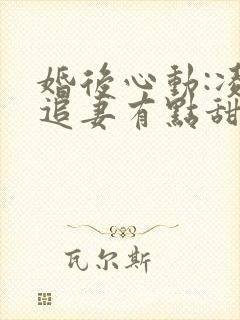 婚後心動:凌
追妻有點甜
瓦尔斯